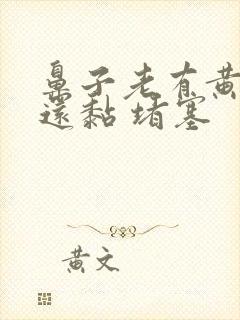 鼻子老有黄
還黏堵塞
黄文